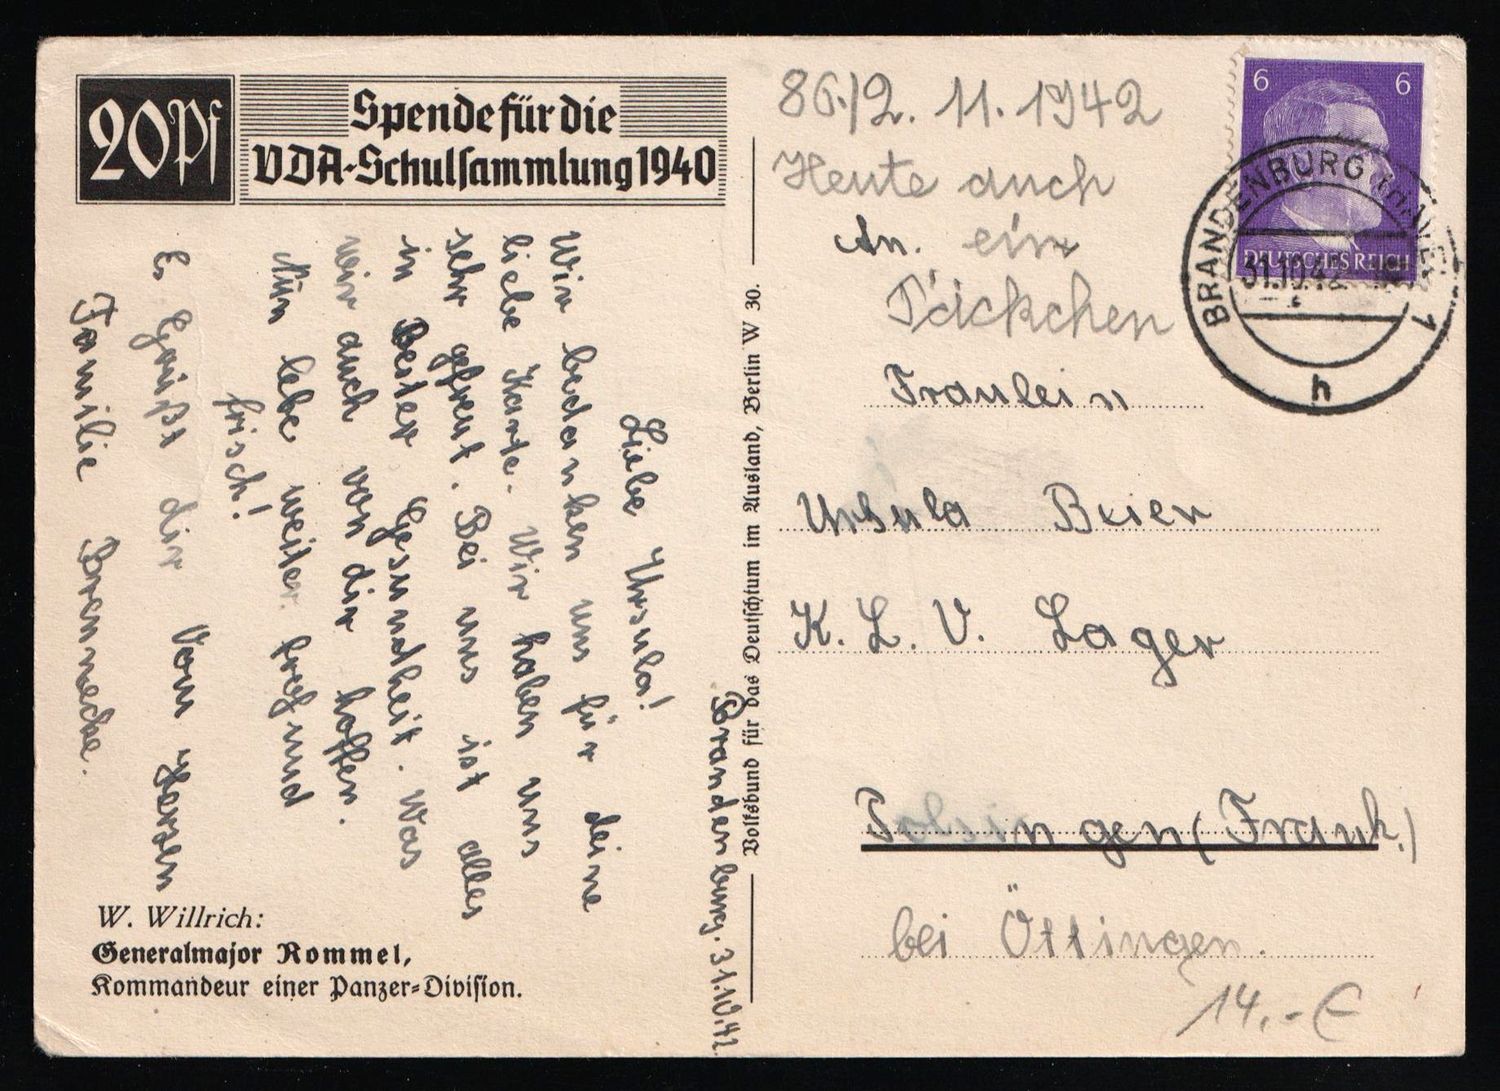 20Pf
Spende für die
VDA-Schulsammlung 1940
Liebe Ursula!
Wir bedanken uns für deine
liebe Karte. Wir haben uns
sehr gefreut. Bei uns ist alles
in Bester Gesundheit. Was
wir auch von dir hoffen.
Nun lebe weiter froh und
frisch!
Es Grüßt dir Vom Herzen
Familie Brennecke.
Brandenburg. 31.10.42
W. Willrich:
Generalmajor Rommel,
Kommandeur einer Panzer-Division.
Volksbund für das Deutschtum im Ausland, Berlin W 30.
86./2. 11. 1942
Heute auch
An. ein
Päckchen
Fräulein
Ursula Beier
K. L. V. Lager
(Frank.)
bei Öttingen.
14,- €
6 6
DEUTSCHES REICH
BRANDENBURG (HAVEL) 1
31.10.42
h